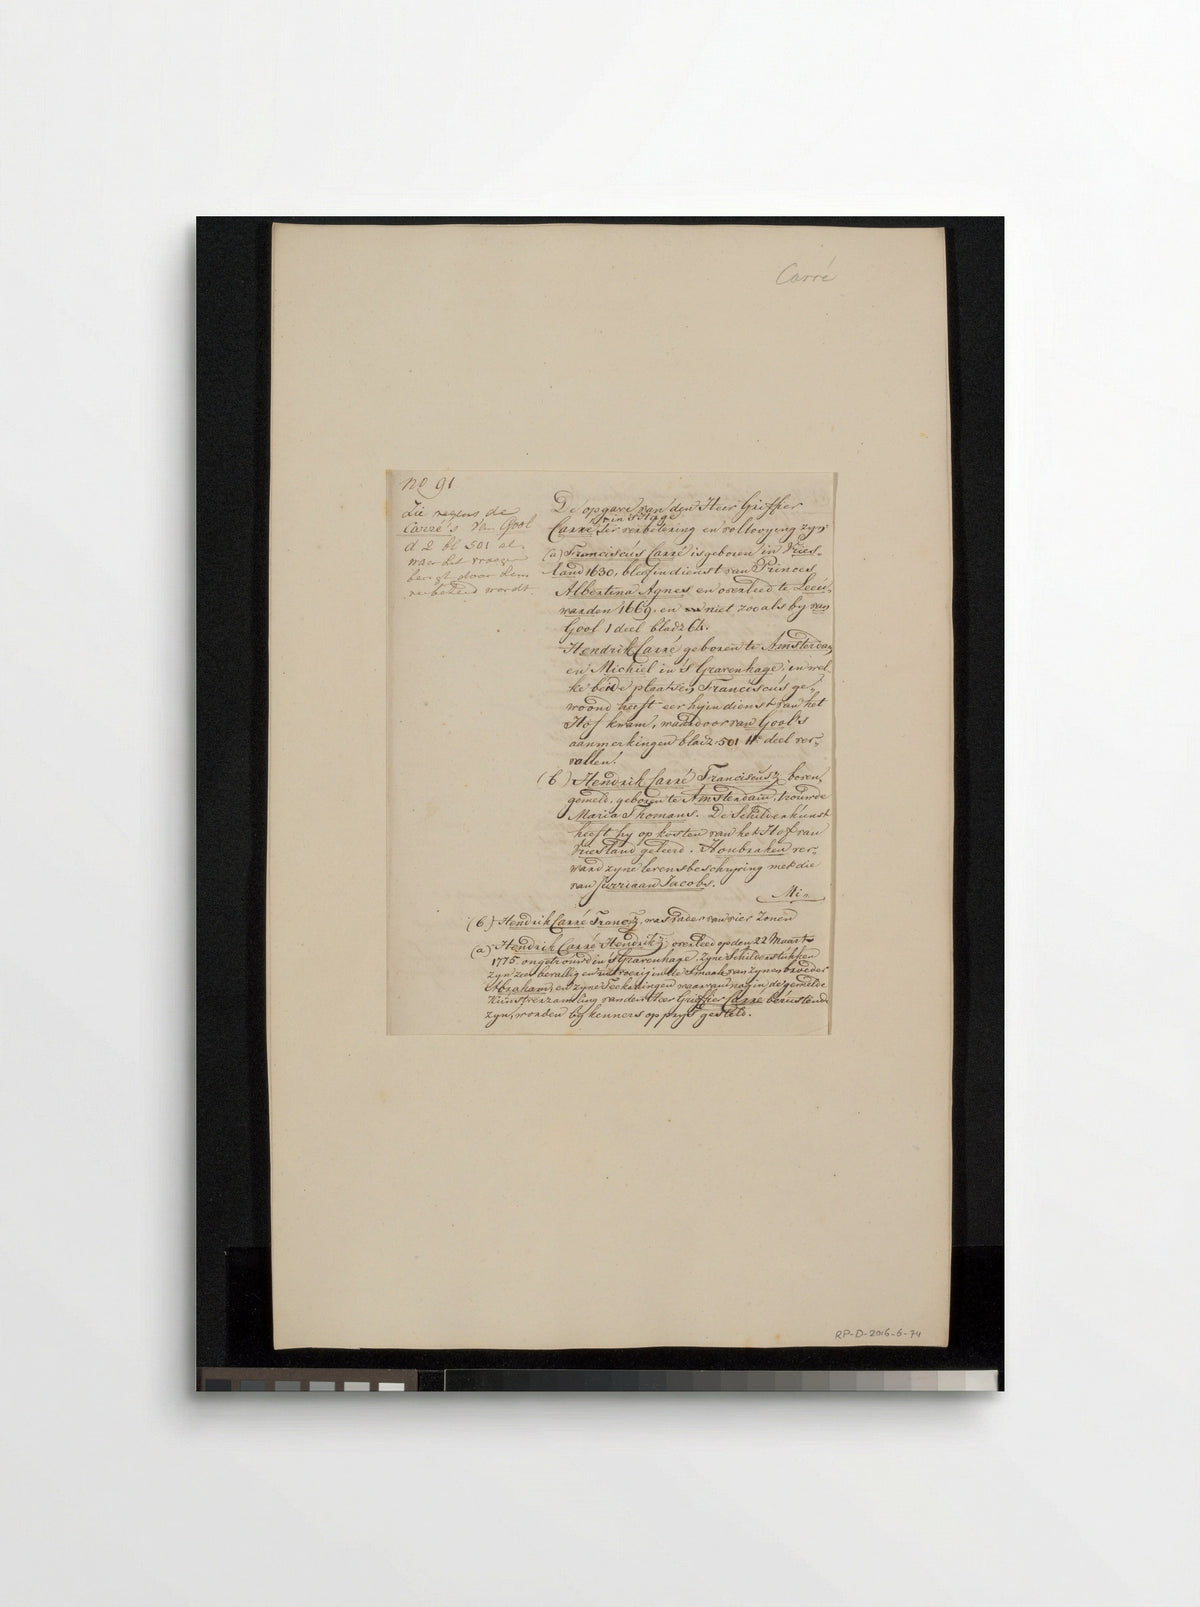 Carré
no 91
Zie wegens de
Carré's van Gool
d 2 bl 501 al-
waer het vroeger
berigt door hem
verbeterd wordt.
De opgave van den Heer Griffier
Carré in 's Hage ter verbetering en voltooying zyn
(a) Franciscus Carré is geboren in Vries-
land 1630, bleef in dienst van Princes
Albertina Agnes en overleed te Leeu-
warden 1669, en niet zooals by van
Gool 1 deel bladz 64.
Hendrik Carré geboren te Amsterdam
en Michiel in 's Gravenhage, in wel-
ke beide plaatsen Franciscus ge-
woond heeft eer hy in dienst van het
Hof kwam, waardoor van Gool's
aanmerkingen bladz 501 IIe deel ver-
vallen.
(b) Hendrik Carré Franciscusz boven
gemeld, geboren te Amsterdam, trouwde
Maria Thomans. De Schilderkunst
heeft hy op kosten van het Hof van
Vriesland geleerd. Houbraken ver-
ward zyne levensbeschryving met die
van Jurriaan Jacobs.
Mi-
(b.) Hendrik Carré Francsz, was Vader van vier Zonen
(a) Hendrik Carré Hendriksz overleed op den 22 Maart
1775 ongetrouwd in 's Gravenhage, zyne Schilderstukken
zyn zeer bevallig en uitvoerig in de smaak van zynen broeder
Abraham, en zyne Teekeningen waarvan nog in de gemelde
Kunstverzameling van den Heer Griffier Carré berustende
zyn, worden by kenners op prys gesteld.
RP-D-2016-6-74